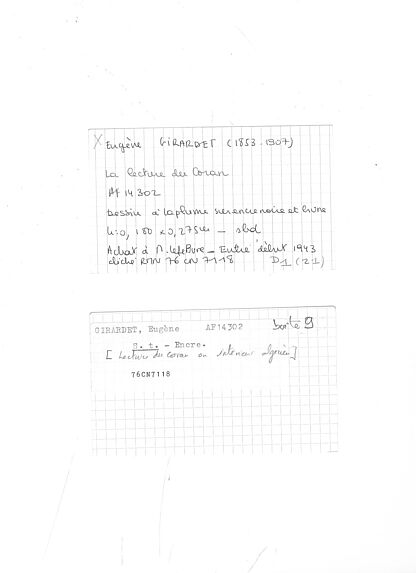 X Eugène GIRARDET (1853-1907)
La lecture du Coran
AF 14302
Dessin à la plume encre noire et brune
h: 0,180 x 0,275 l - sbd
Achat à M. Lefebvre - Entré début 1943
cliché RMN 76 CN 7118 D1 (21)
GIRARDET, Eugène AF14302 boîte 9
s. t. - Encre.
[Lecture du coran ou intérieur algérien]
76CN7118